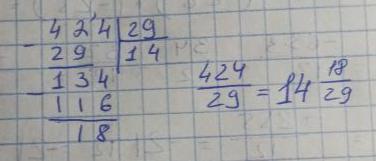 424 29
- 29 14
134
- 116
18
424/29 = 14 18/29